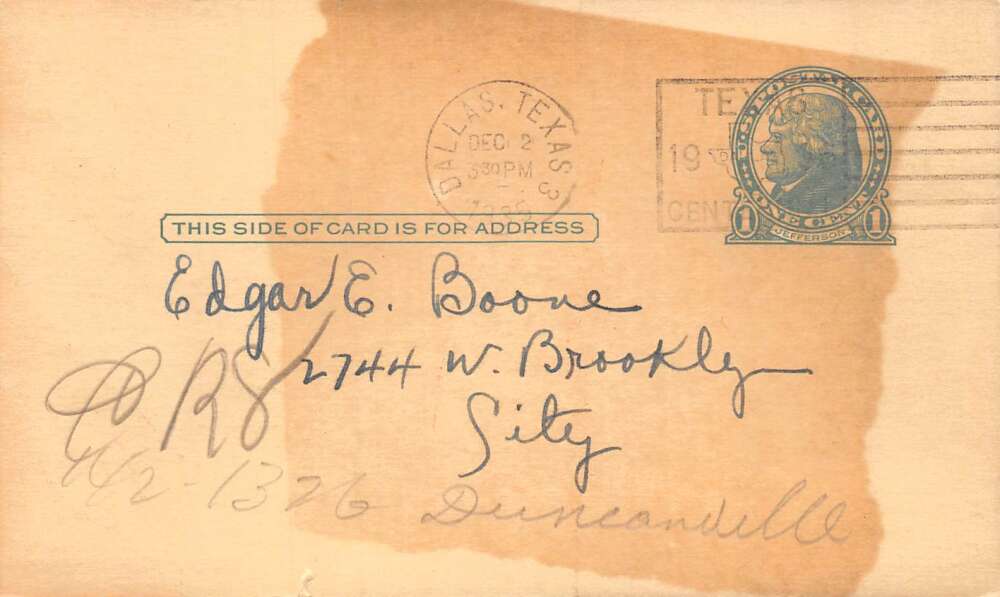 DALLAS, TEXAS 3
DEC 2
3 30 PM
1935
TEXAS
19
CENT
U·S·POSTAL CARD
ONE CENT
1 JEFFERSON 1
THIS SIDE OF CARD IS FOR ADDRESS
Edgar E. Boone
2744 W. Brooklyn
City
R8
1326 Duncanville